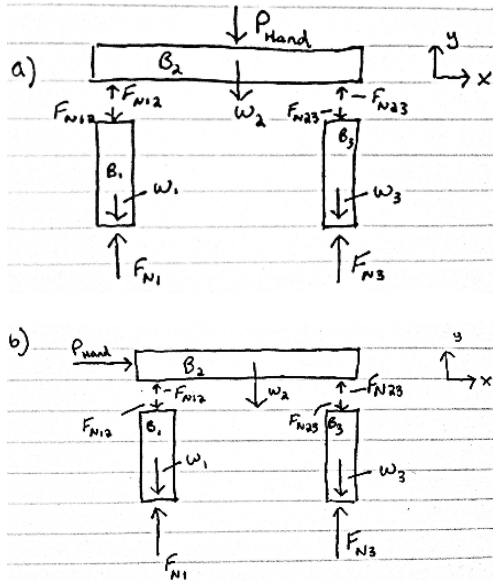 P_Hand
a)
B_2
y
x
F_N12
F_N23
F_N12
W_2
F_N23
B_1
B_3
W_1
W_3
F_N1
F_N3
b)
P_Hand
B_2
y
x
F_N12
W_2
F_N23
F_N12
F_N23
B_1
B_3
W_1
W_3
F_N1
F_N3